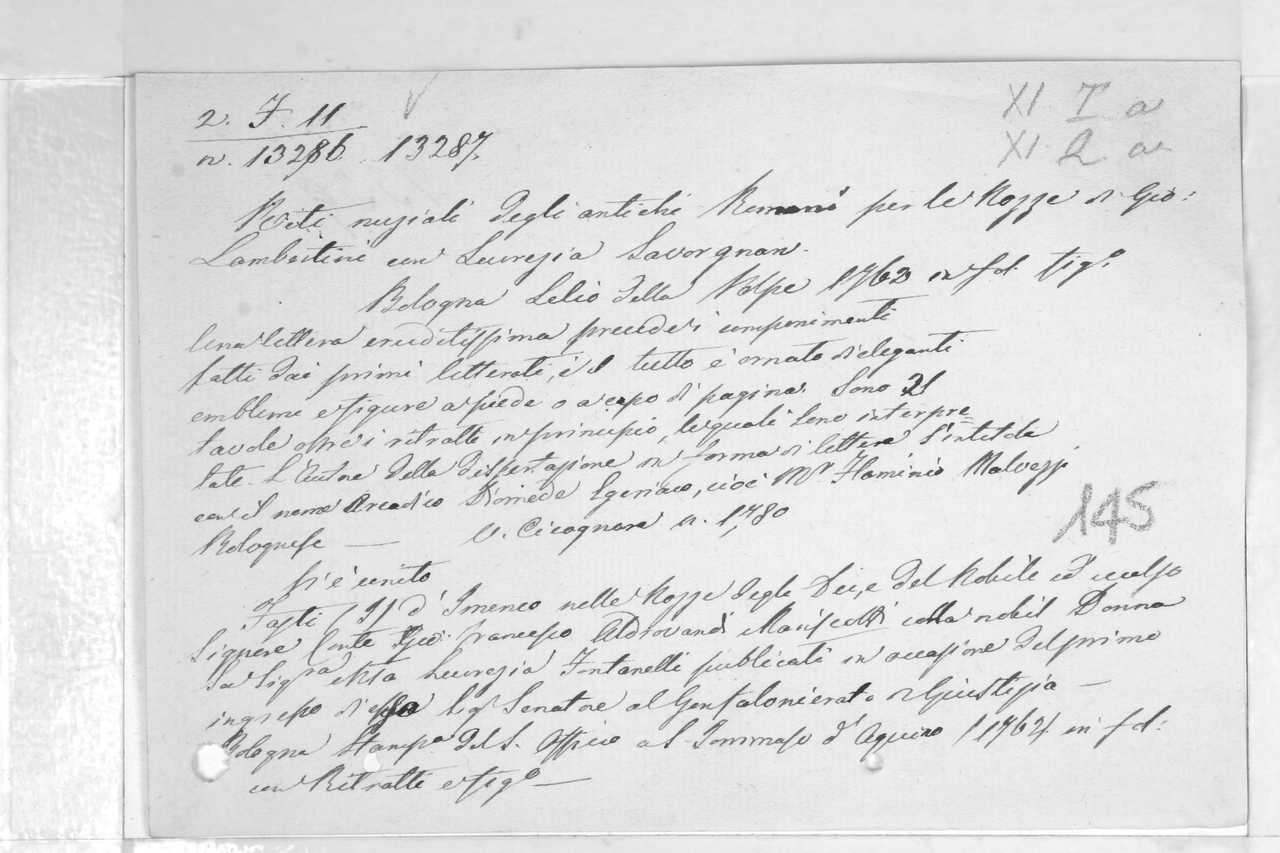 2. F. 11
n. 13286. 13287.
XI I a
XI 2 a
Riti nuziali degli antichi Romani per le Nozze di Gio:
Lambertini con Lucrezia Savorgnan.
Bologna Lelio della Volpe 1762 in fol. figo
Una lettera eruditissima precede i componimenti
fatti dai primi letterati, è il tutto è ornato di eleganti
emblemi e figure a piede o a capo di pagina. Sono 21
tavole oltre i ritratti in principio, le quali sono interpre=
tate. L'Autore della dissertazione in forma di lettera s'intitola
con il nome Arcadico Diomede Egeriaco, cioè Mr Flaminio Malvezzi
Bolognese — V. Cicognara n. 1780
145
Vi è unito
Fasti (I) d'Imeneo nelle Nozze degli Dei, e del Nobile ed eccelso
Signore Conte Gio: Francesco Aldrovandi Mariscotti colla nobil Donna
la Sigra Ctssa Lucrezia Fontanelli publicati in occasione del primo
ingresso di esso Sigr Senatore al Gonfalonierato di Giustizia —
Bologna Stampa del S. Officio a S. Tommaso d'Aquino (1762) in fol:
con Ritratti e figo —